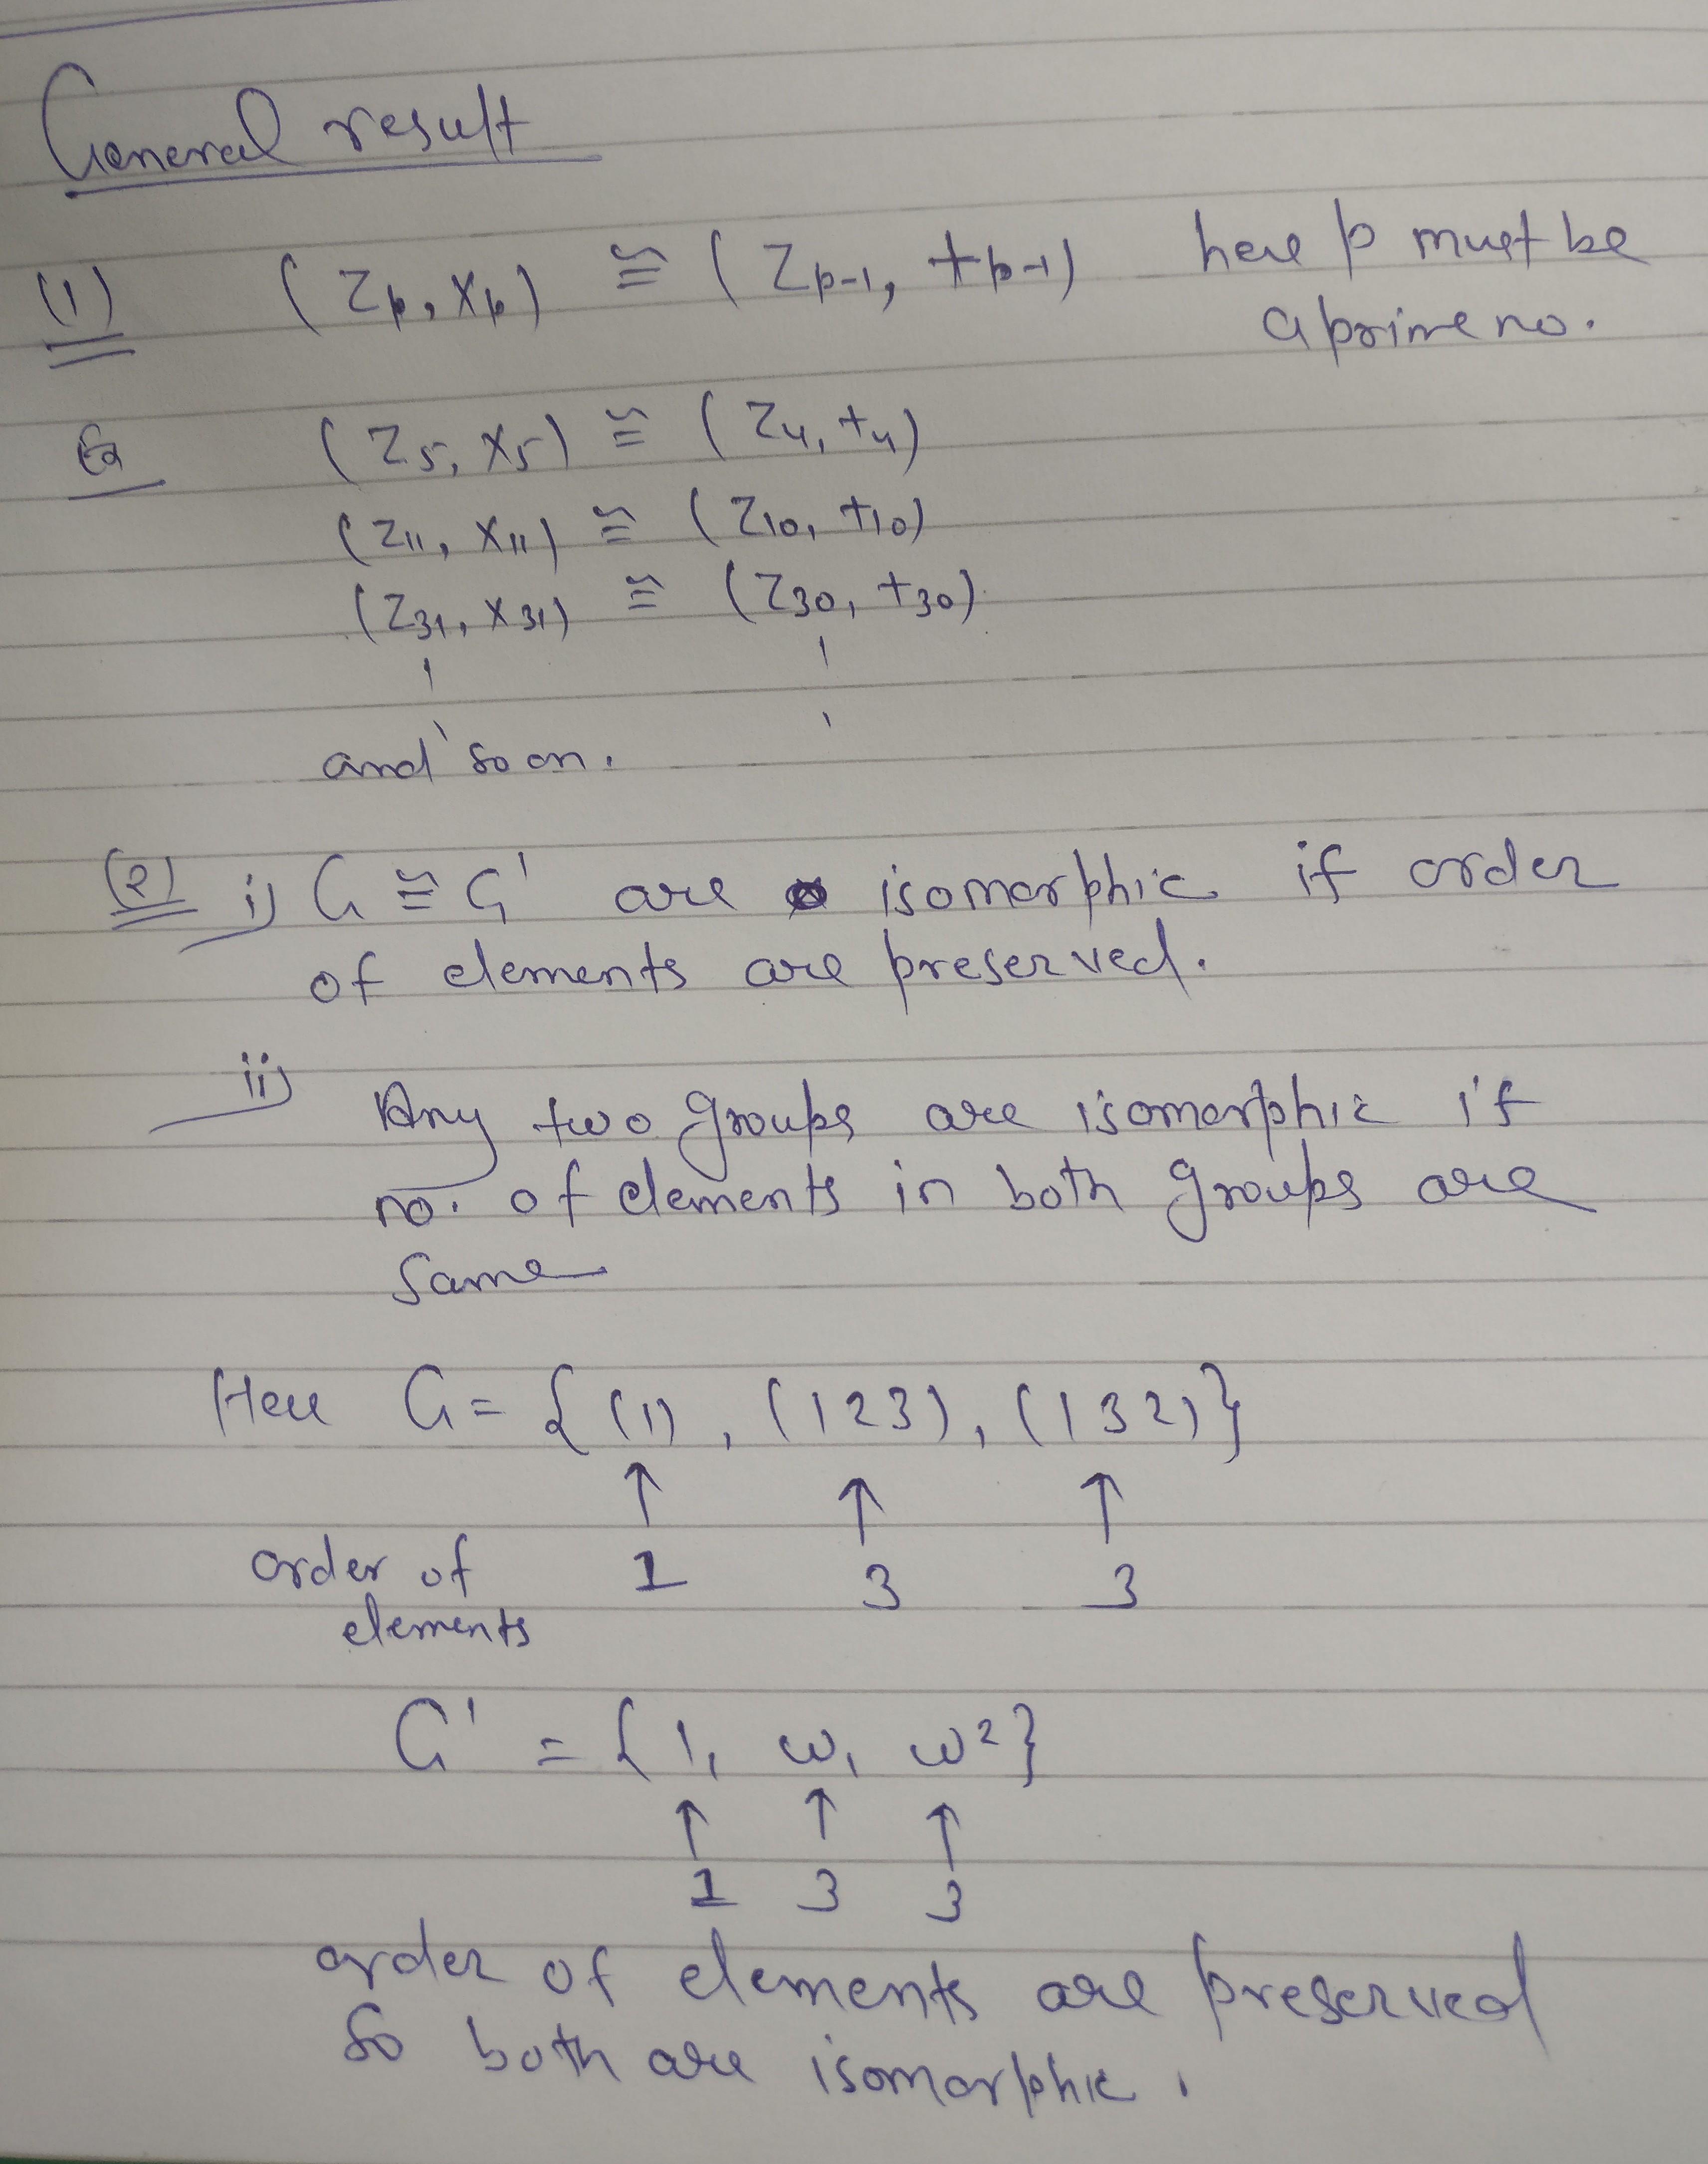 General result
(1) (Zp, Xp) ≅ (Zp-1, +p-1) here p must be
a prime no.
Ex (Z5, X5) ≅ (Z4, +4)
(Z11, X11) ≅ (Z10, +10)
(Z31, X31) ≅ (Z30, +30)
and so on.
(2) i) G ≅ G' are isomorphic if order
of elements are preserved.
ii) Any two groups are isomorphic if
no. of elements in both groups are
same
Here G = { (1), (1 2 3), (1 3 2) }
↑ ↑ ↑
order of 1 3 3
elements
G' = { 1, ω, ω² }
↑ ↑ ↑
1 3 3
order of elements are preserved
So both are isomorphic.